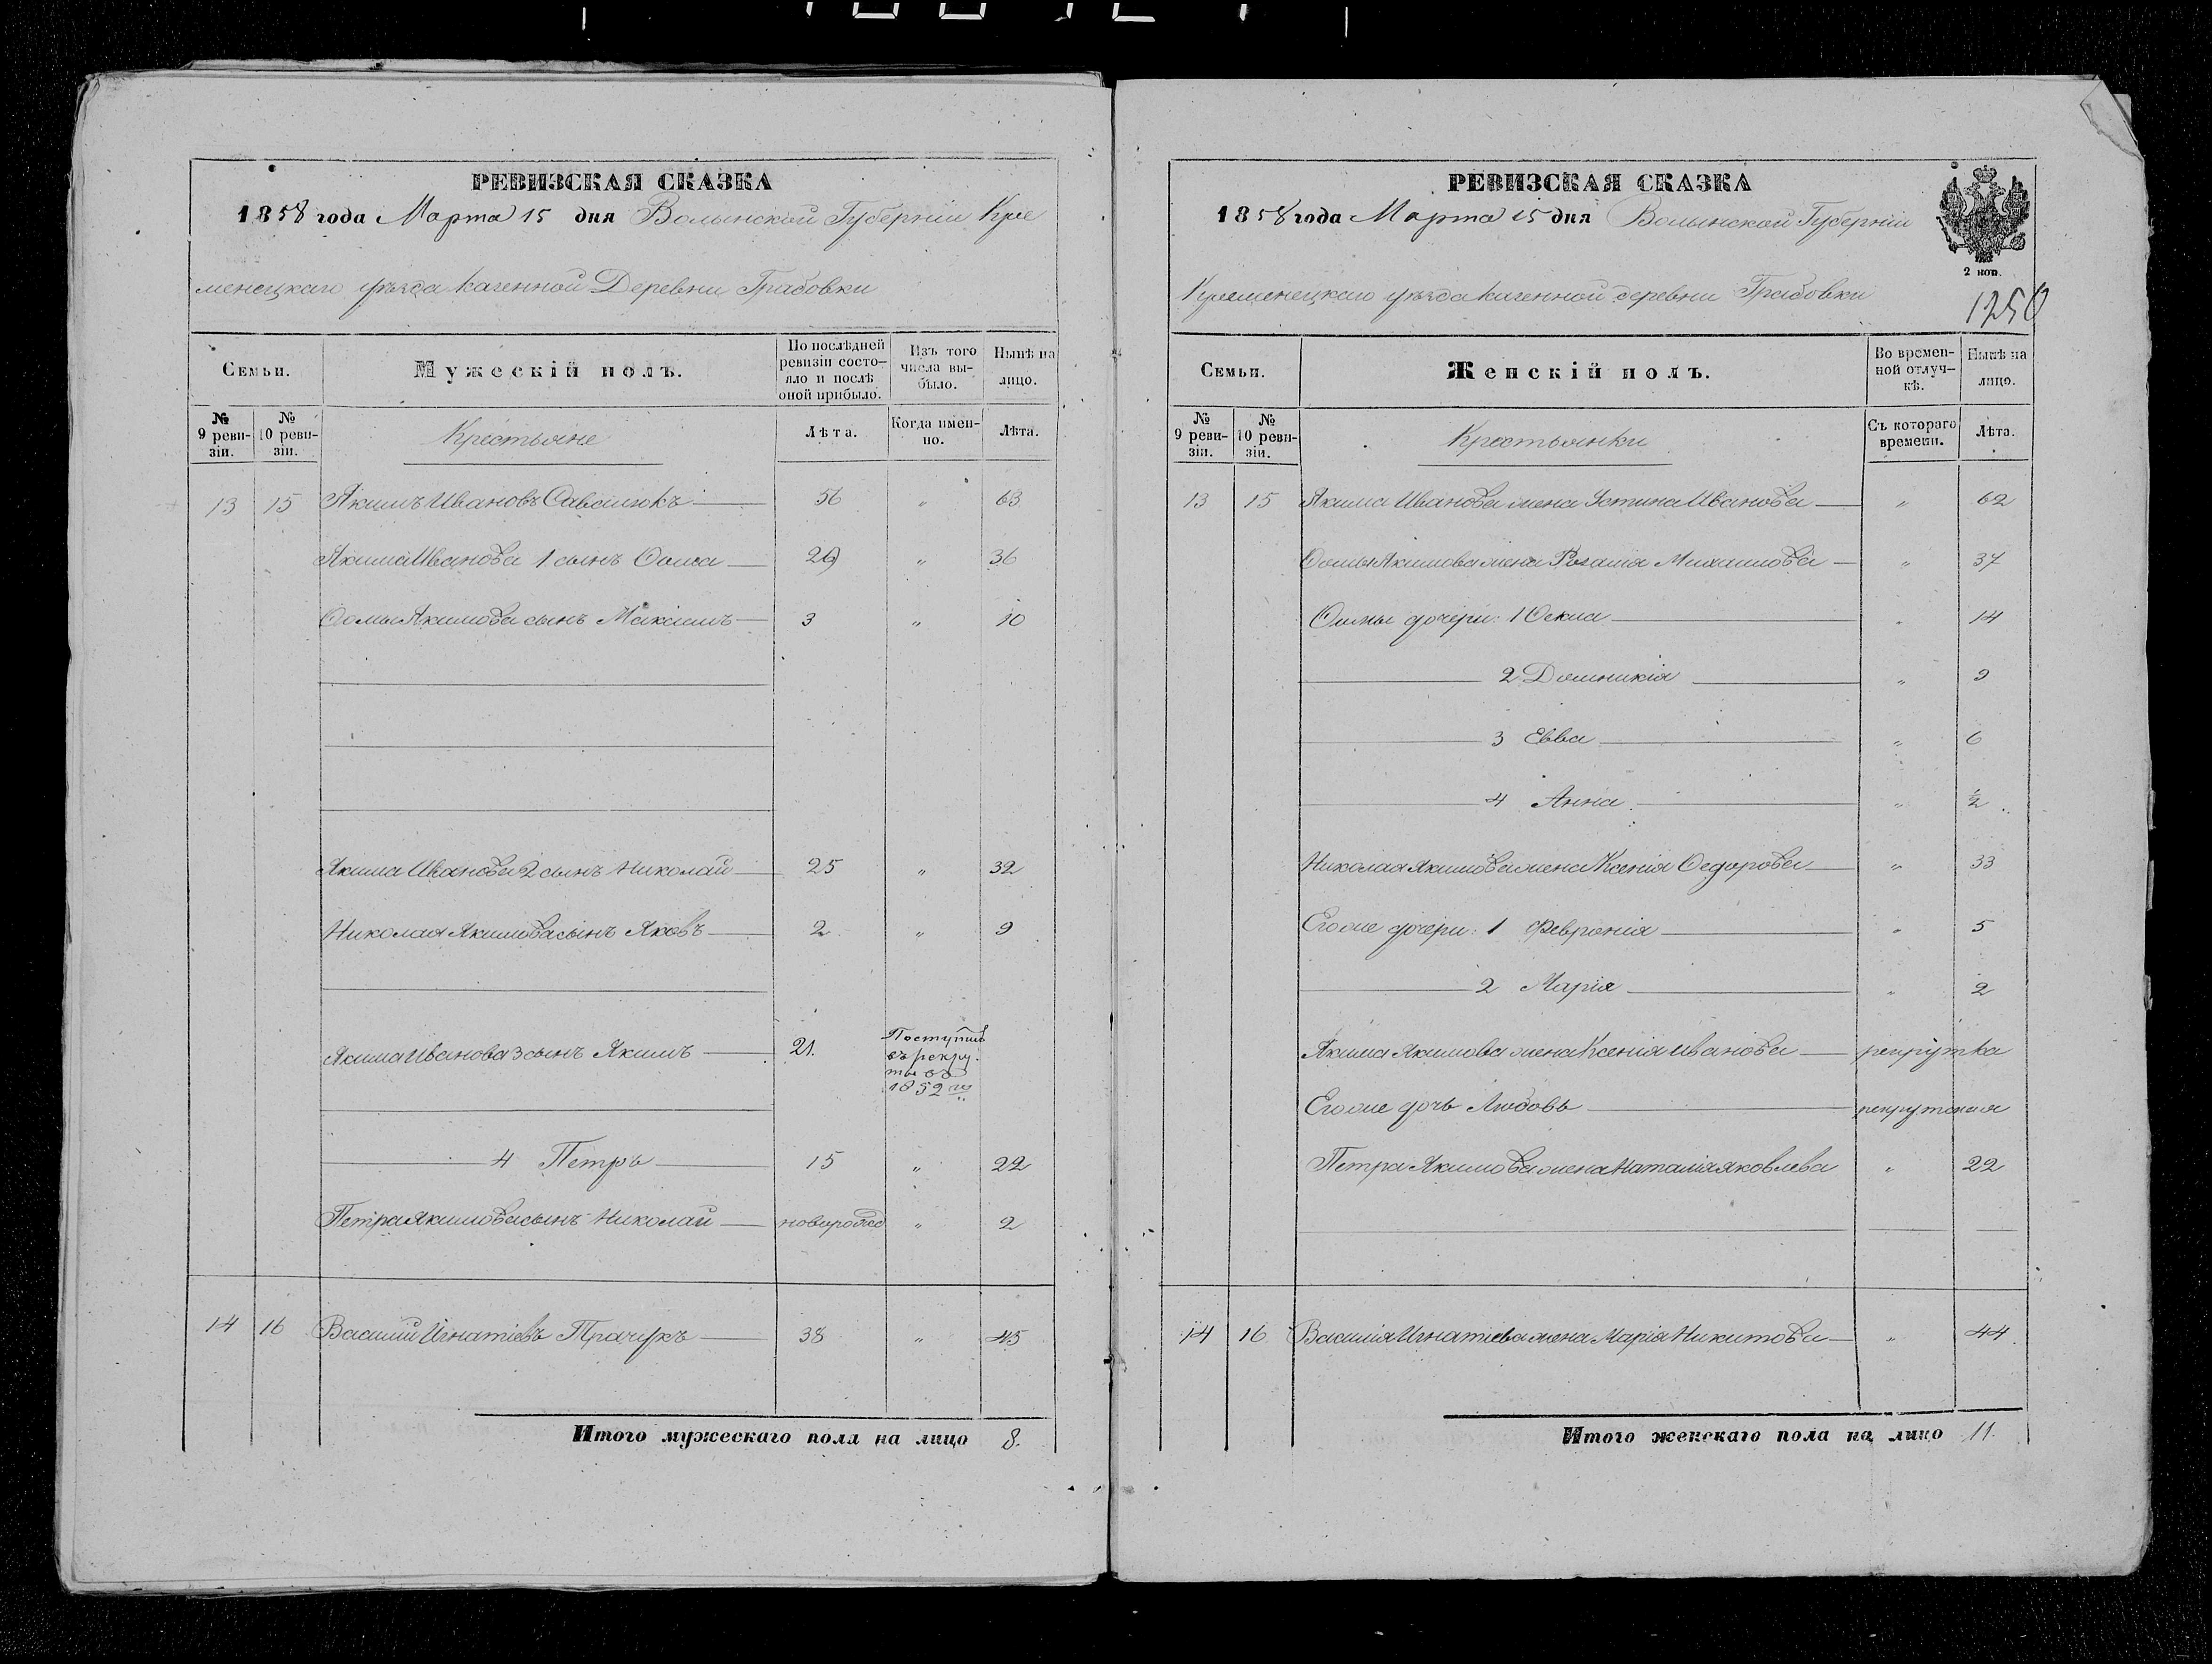 РЕВИЗСКАЯ СКАЗКА
1858 года Марта 15 дня Волынской Губерніи Кре
менецкаго уѣзда казенной Деревни Грабовки
Семьи.
Мужескій полъ.
По послѣдней ревизіи состо-
яло и послѣ
оной прибыло.
Изъ того
числа вы-
было.
Нынѣ на
лицо.
№
9 реви-
зіи.
№
10 реви-
зіи.
Крестьяне
Лѣта.
Когда имен-
но.
Лѣта.
13 15 Якимъ Ивановъ Савсюкъ 56 „ 63
Якима Иванова 1 сынъ Ѳома 29 „ 36
Ѳомы Якимова сынъ Максимъ 3 „ 10
Якима Иванова 2 сынъ Николай 25 „ 32
Николая Якимова сынъ Яковъ 2 „ 9
Якима Иванова 3 сынъ Якимъ 21.
Поступилъ
въ рекру-
ты въ
1852 го
4 Петръ 15 „ 22
Петра Якимова сынъ Николай новорожд „ 2
14 16 Василій Игнатіевъ Ткачукъ 38 „ 45
Итого мужескаго пола на лицо 8.
РЕВИЗСКАЯ СКАЗКА
1858 года Марта 15 дня Волынской Губерніи
2 коп.
Кременецкаго уѣзда казенной деревни Грабовки
1250
Семьи.
Женскій полъ.
Во времен-
ной отлуч-
кѣ.
Нынѣ на
лицо.
№
9 реви-
зіи.
№
10 реви-
зіи.
Крестьянки
Съ котораго
времени.
Лѣта.
13 15 Якима Иванова жена Устина Иванова „ 62
Ѳомы Якимова жена Розалія Михаилова „ 37
Ѳомы дочери: 1 Ѳекла „ 14
2 Домникія „ 9
3 Евва „ 6
4 Анна „ ½
Николая Якимова жена Ксенія Ѳедорова „ 33
Его же дочери: 1 Февронія „ 5
2 Марія „ 2
Якима Якимова жена Ксенія Иванова рекрутка
Его же дочь Любовь рекрутская
Петра Якимова жена Наталія Яковлева „ 22
14 16 Василія Игнатіева жена Марія Никитова „ 44
Итого женскаго пола на лицо 11.